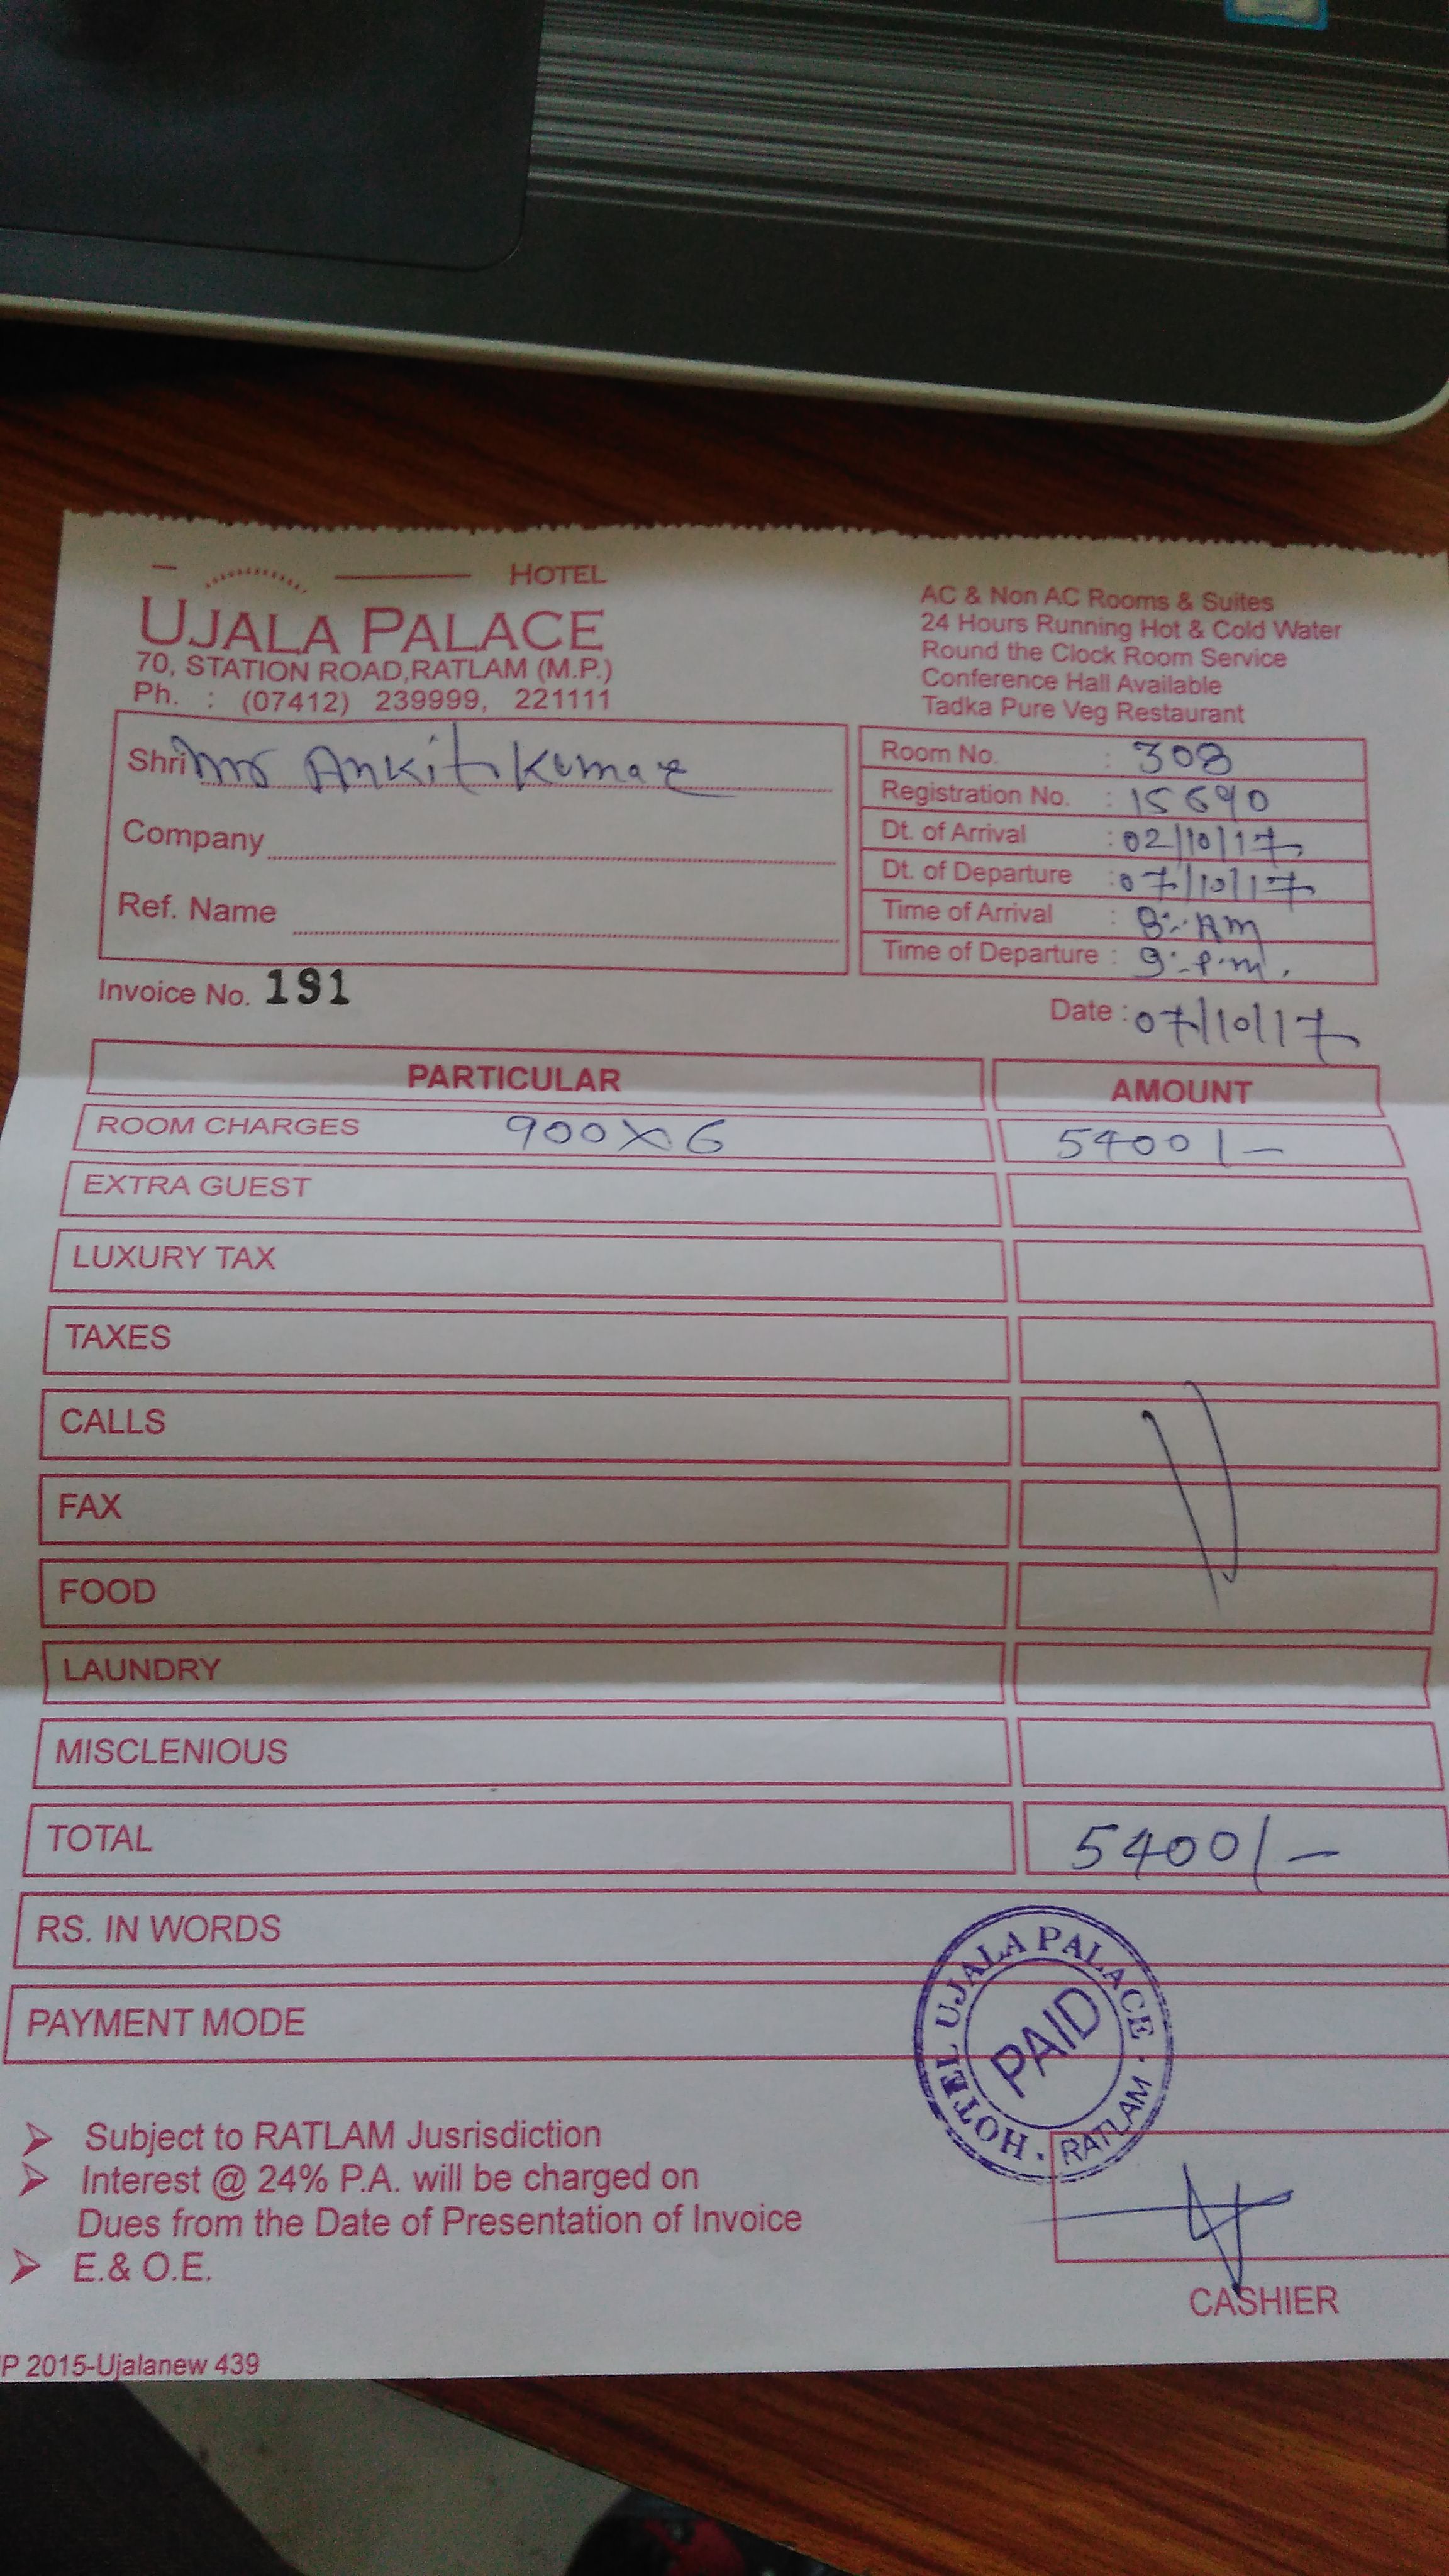 HOTEL
UJALA PALACE
70, STATION ROAD,RATLAM (M.P.)
Ph. : (07412) 239999, 221111
AC & Non AC Rooms & Suites
24 Hours Running Hot & Cold Water
Round the Clock Room Service
Conference Hall Available
Tadka Pure Veg Restaurant
Shri Mr Ankit Kumar
Company
Ref. Name
Room No. : 308
Registration No. : 15690
Dt. of Arrival : 02/10/17
Dt. of Departure : 07/10/17
Time of Arrival : 8:- Am
Time of Departure : 9:- P.m.
Invoice No. 191
Date : 07/10/17
PARTICULAR AMOUNT
ROOM CHARGES 900X6 5400/-
EXTRA GUEST
LUXURY TAX
TAXES
CALLS
FAX
FOOD
LAUNDRY
MISCLENIOUS
TOTAL 5400/-
RS. IN WORDS
PAYMENT MODE
HOTEL UJALA PALACE · RATLAM ·
PAID
Subject to RATLAM Jusrisdiction
Interest @ 24% P.A. will be charged on
Dues from the Date of Presentation of Invoice
E.& O.E.
CASHIER
P 2015-Ujalanew 439